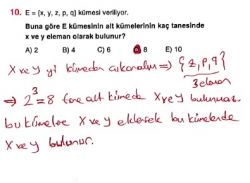 10. E = {x, y, z, p, q} kümesi veriliyor.
Buna göre E kümesinin alt kümelerinin kaç tanesinde
x ve y eleman olarak bulunur?
A) 2 B) 4 C) 6 D) 8 E) 10
x ve y yi kümeden çıkaralım => {z, p, q}
3 eleman
=> 2³ = 8 tane alt kümede x ve y bulunmaz.
bu kümelere x ve y eklersek bu kümelerde
x ve y bulunur.